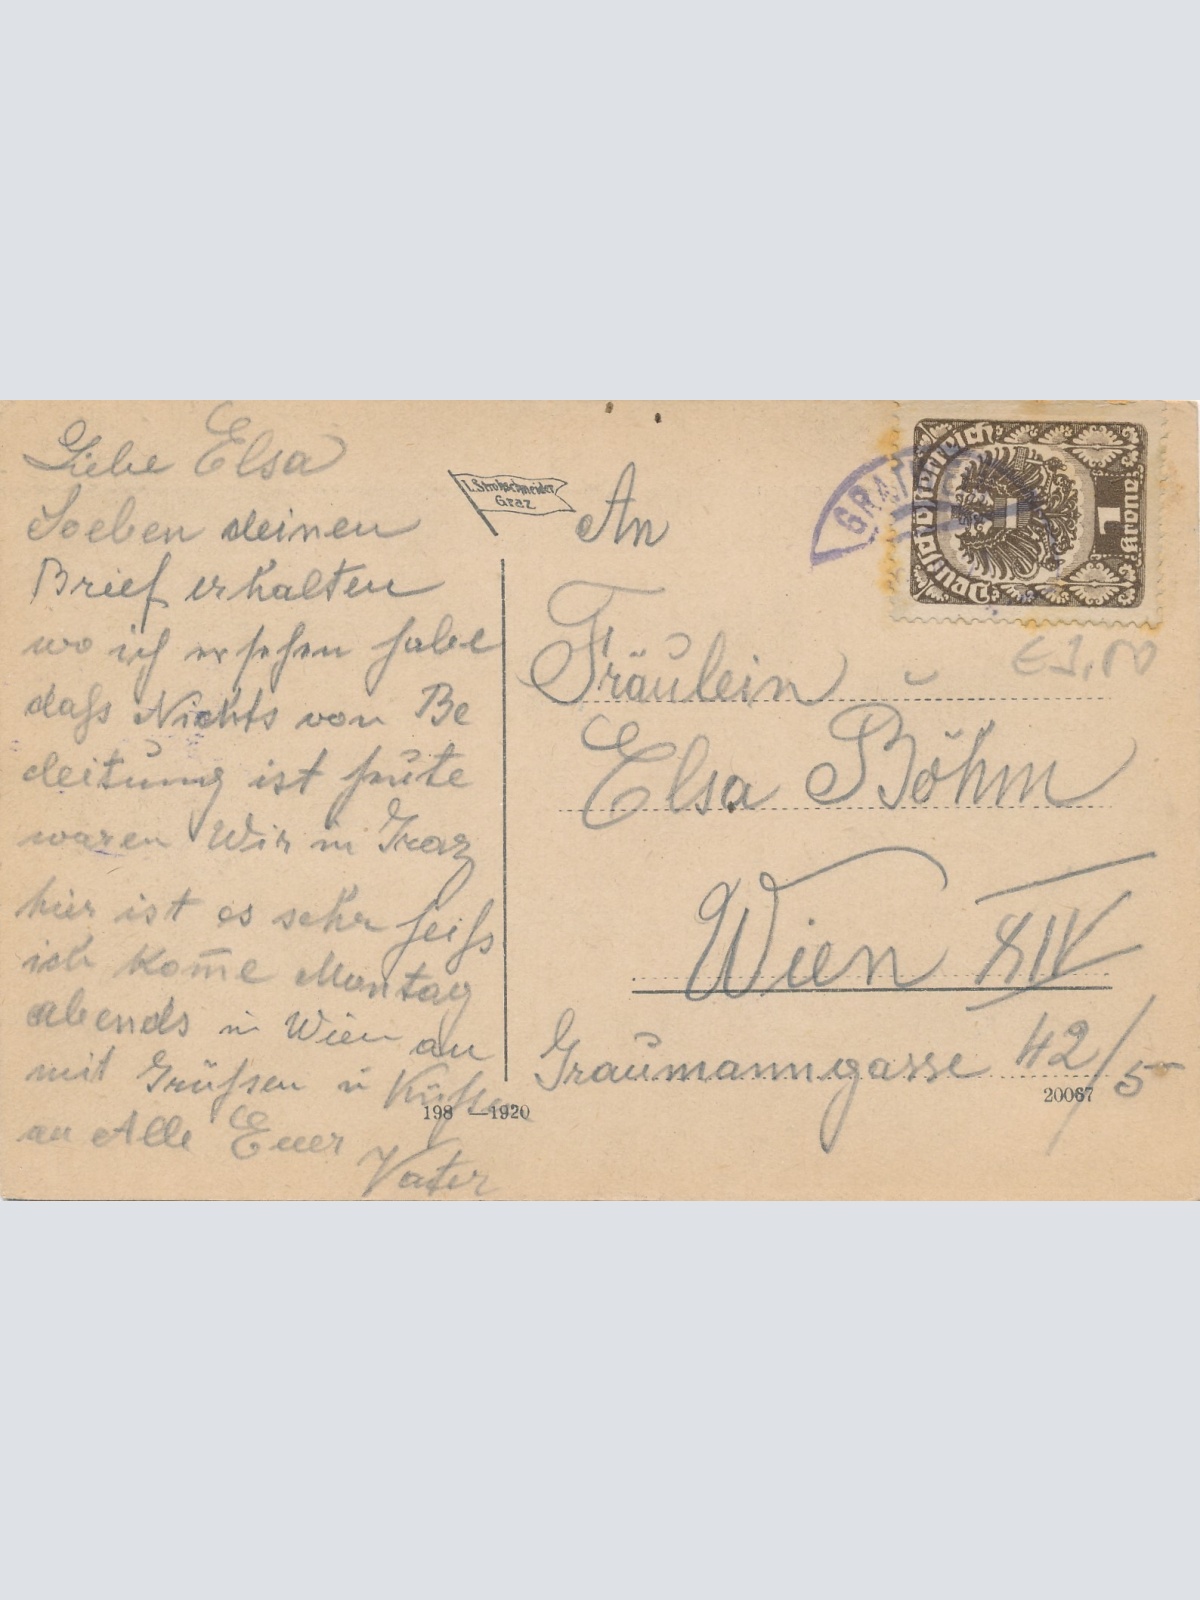 Liebe Elsa
Soeben deinen
Brief erhalten
wo ich ersehen habe
daſs Nichts von Be
deitung ist heute
waren Wir in Graz
hier ist es sehr heiſs
ich kom̄e Montag
abends in Wien an
mit Grüſsen ü Küſsen
an Alle Euer
Vater
L. Strohschneider
Graz
198 —1920
An
Fräulein
Elsa Böhm
Wien XIV
Graumanngasse 42/5
20067
Deutschösterreich
1
Krone
€ 1,00